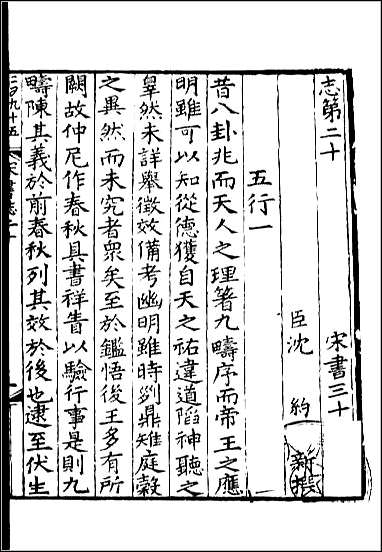 志第二十 宋書三十
臣沈 約 新撰
五行一
昔八卦兆而天人之理著九疇序而帝王之應
明雖可以知從德獲自天之祐違道陷神聽之
辠然未詳舉徵效備考幽明雖時列鼎雉庭穀
之異然而未究者衆矣至於鑑悟後王多有所
闕故仲尼作春秋具書祥眚以驗行事是則九
疇陳其義於前春秋列其效於後也逮至伏生